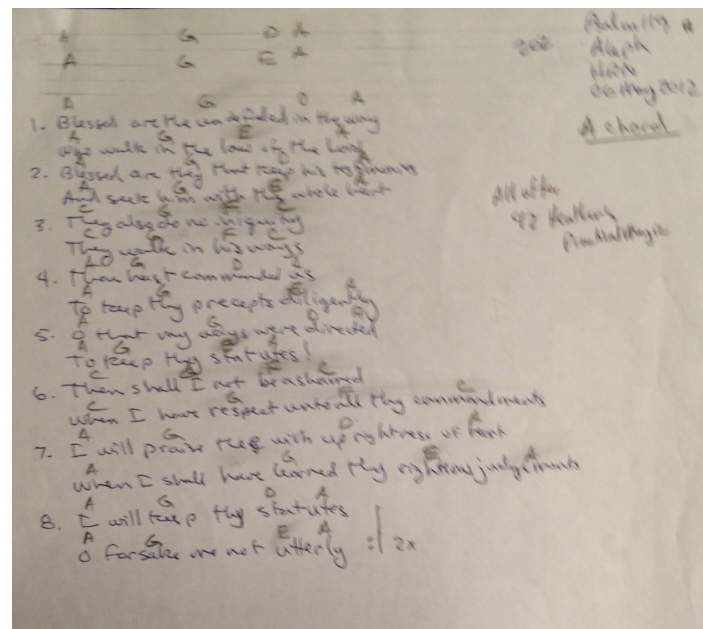 A G D A
A G E A
Psalm 119
Aleph
May 2012
A chord
All after
A G D A
1. Blessed are the undefiled in the way
A G E A
who walk in the law of the Lord
2. Blessed are they that keep his testimonies
A G E
And seek him with the whole heart
C G F C
3. They also do no iniquity
C G F C
They walk in his ways
A G D A
4. Thou hast commanded us
A G E A
To keep thy precepts diligently
A G D A
5. O that my ways were directed
A G E A
To keep thy statutes!
C G F C
6. Then shall I not be ashamed
C G F C
when I have respect unto all thy commandments
A G D A
7. I will praise thee with uprightness of heart
A G E A
when I shall have learned thy righteous judgements
A G D A
8. I will keep thy statutes
A G E A
O forsake me not utterly :| 2x